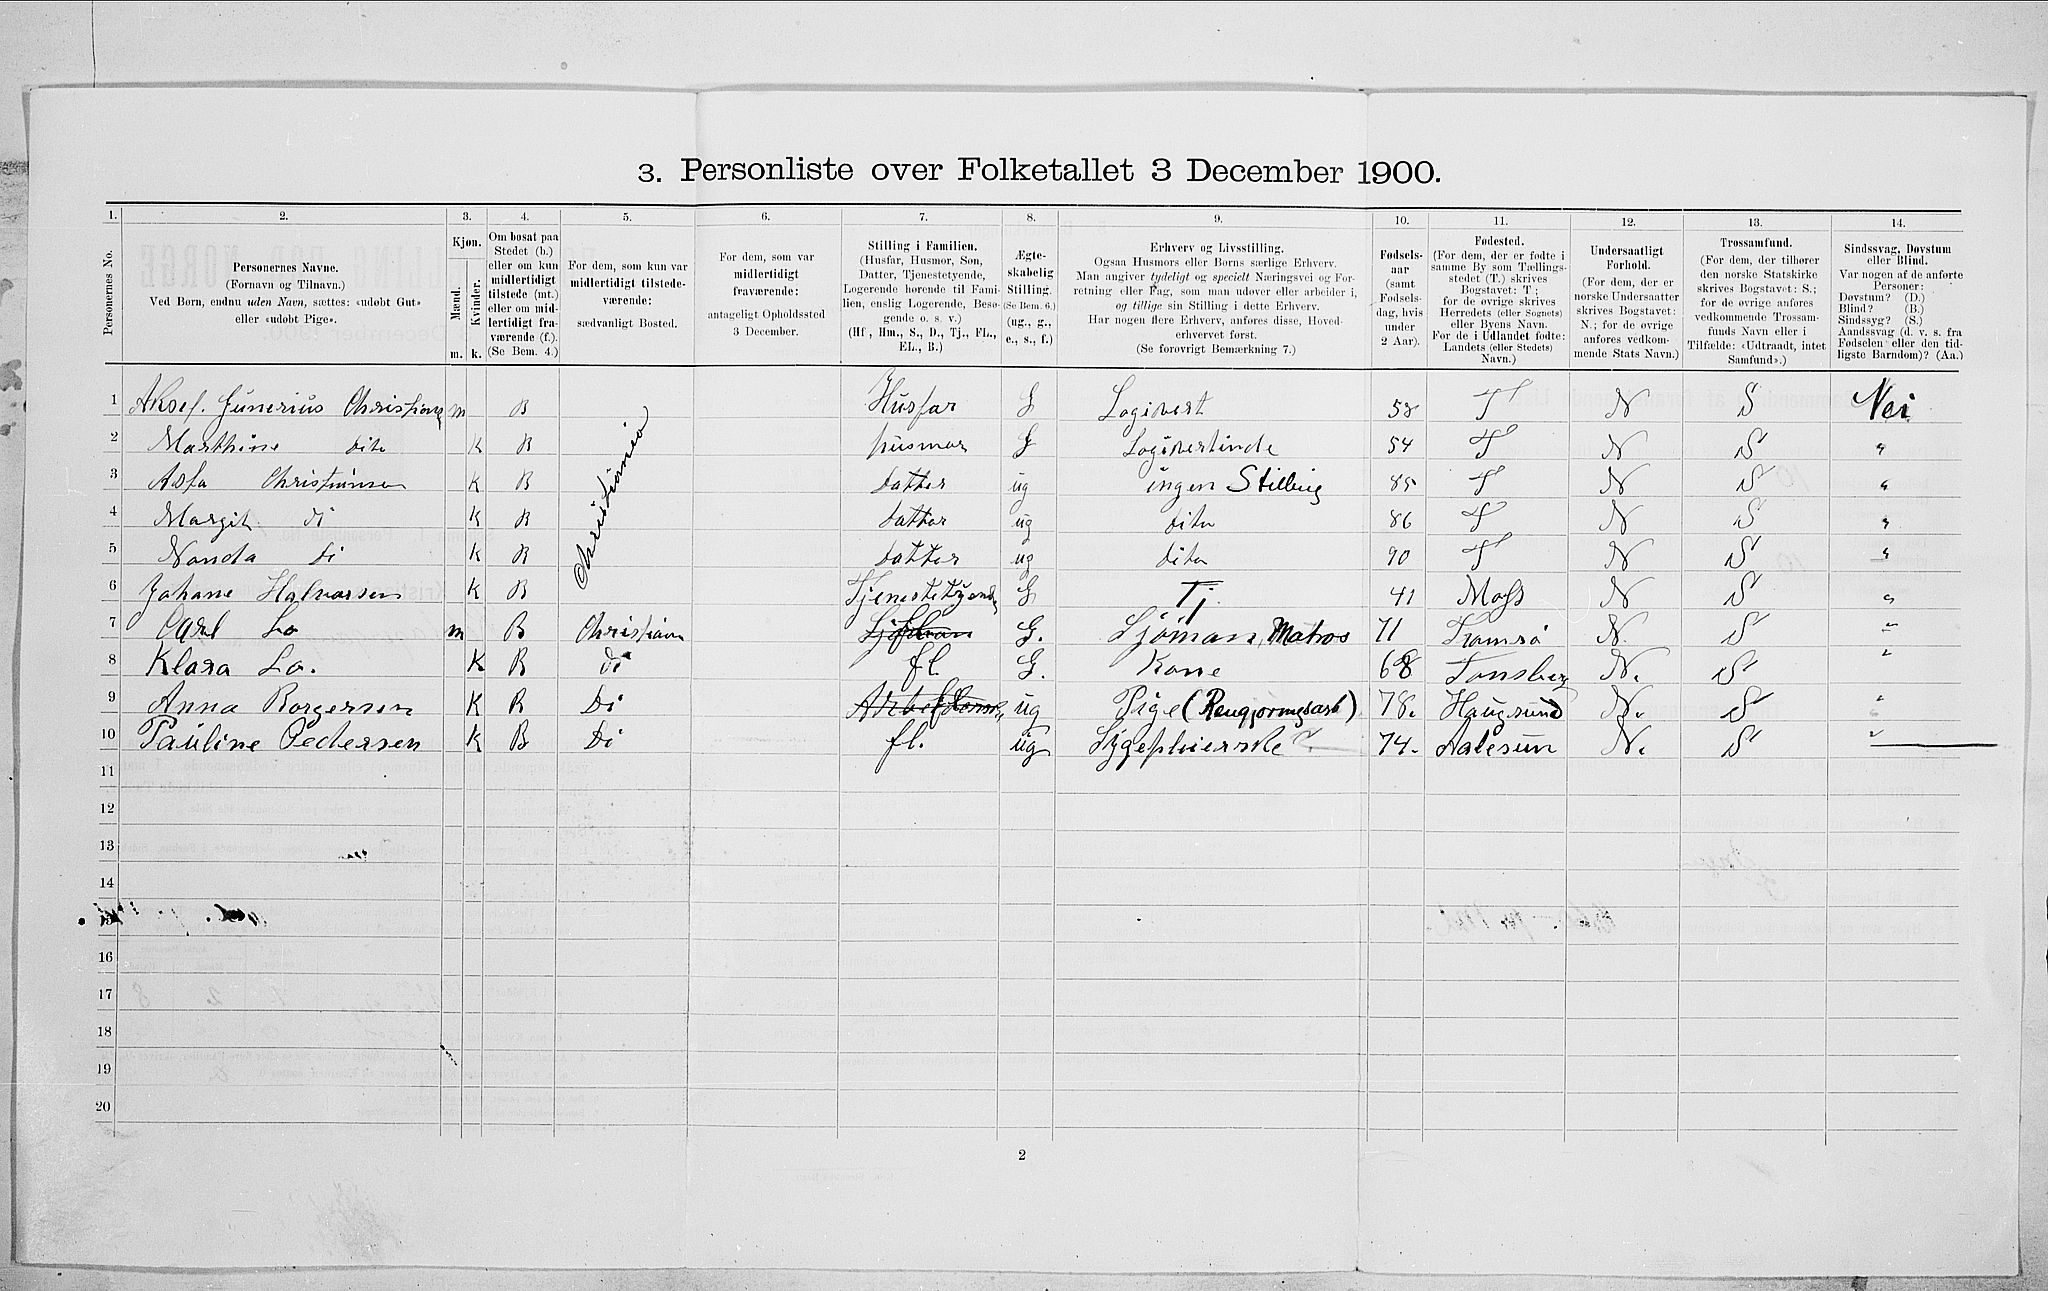 3. Personliste over Folketallet 3 December 1900.
1. 2. 3. 4. 5. 6. 7. 8. 9. 10. 11. 12. 13. 14.
Personernes No.
Personernes Navne.
(Fornavn og Tilnavn.)
Ved Børn, endnu uden Navn, sættes: «udøbt Gut»
eller «udøbt Pige».
Kjøn.
Mænd.
Kvinder.
m. k.
Om bosat paa
Stedet (b.)
eller om kun
midlertidigt
tilstede (mt.)
eller om mid-
lertidigt fra-
værende (f.).
(Se Bem. 4.)
For dem, som kun var
midlertidigt tilstede-
værende:
sædvanligt Bosted.
For dem, som var
midlertidigt
fraværende:
antageligt Opholdssted
3 December.
Stilling i Familien.
(Husfar, Husmor, Søn,
Datter, Tjenestetyende,
Logerende hørende til Fami-
lien, enslig Logerende, Besø-
gende o. s. v.)
(Hf, Hm., S., D., Tj., FL.,
EL., B.)
Ægte-
skabelig
Stilling.
(Se Bem. 6.)
(ug., g.,
e., s., f.)
Erhverv og Livsstilling.
Ogsaa Husmors eller Børns særlige Erhverv.
Man angiver tydeligt og specielt Næringsvei og For-
retning eller Fag, som man udøver eller arbeider i,
og tillige sin Stilling i dette Erhverv.
Har nogen flere Erhverv, anføres disse, Hoved-
erhvervet først.
(Se forøvrigt Bemærkning 7.)
Fødsels-
aar
(samt
Fødsels-
dag, hvis
under
2 Aar).
Fødested.
(For dem, der er fødte i
samme By som Tællings-
stedet (T.) skrives
Bogstavet: T.;
for de øvrige skrives
Herredets (eller Sognets)
eller Byens Navn.
For de i Udlandet fødte:
Landets (eller Stedets)
Navn.)
Undersaatligt
Forhold.
(For dem, der er
norske Undersaatter
skrives Bogstavet:
N.; for de øvrige
anføres vedkom-
mende Stats Navn.)
Trossamfund.
(For dem, der tilhører
den norske Statskirke
skrives Bogstavet: S.;
for de øvrige anføres
vedkommende Trossam-
funds Navn eller i
Tilfælde: «Udtraadt, intet
Samfund».)
Sindssvag, Døvstum
eller Blind.
Var nogen af de anførte
Personer:
Døvstum? (D.)
Blind? (B.)
Sindssyg? (S.)
Aandssvag (d. v. s. fra
Fødselen eller den tid-
ligste Barndom)? (Aa.)
1 Aksel. Junerius Christians m B Husfar G Logivert 58 T N S Nei
2 Marthine dito K B husmor G Logivertinde 54 T N S "
3 Asta Christiansen K B datter ug ingen Stilling 85 T N S "
4 Margit di K B datter ug dito 86 T N S "
5 Nanda di K B datter ug dito 90 T N S "
Christiania
6 Johane Halvorsen K B Tjenestetyende G Tj. 41 Moss N S "
7 Carl Lo m B Christiania G. Sjöman, Matros 71 Tromsö N. S "
8 Klara Lo. K B di fl. G. Kone 68 Tonsberg N. S "
9 Anna Borgersen K B Di ug Pige (Rengjøringsarb) 78. Haugsund N. S "
10 Pauline Pedersen K B Di fl. ug Sygepleierske 74. Aalesun N. S "
11
12
13
14
15
16
17
18
19
20
2